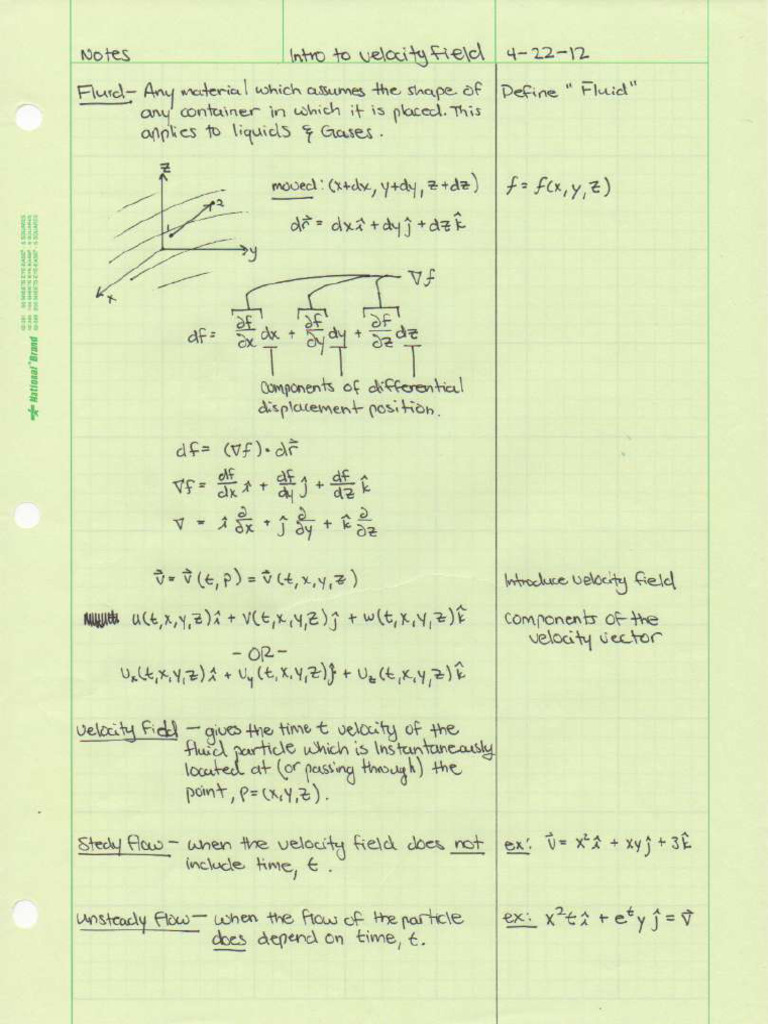 Notes Intro to Velocity Field 4-22-12
Fluid- Any material which assumes the shape of
any container in which it is placed. This
applies to liquids & Gases.
Define "Fluid"
z
moved: (x+dx, y+dy, z+dz)
f = f(x,y,z)
1 2
dr⃗ = dx î + dy ĵ + dz k̂
y
x
∇f
df = ∂f/∂x dx + ∂f/∂y dy + ∂f/∂z dz
Components of differential
displacement position.
df = (∇f)·dr⃗
∇f = df/dx î + df/dy ĵ + df/dz k̂
∇ = î ∂/∂x + ĵ ∂/∂y + k̂ ∂/∂z
v⃗ = v⃗(t, P) = v⃗(t,x,y,z)
Introduce velocity field
u(t,x,y,z) î + v(t,x,y,z) ĵ + w(t,x,y,z) k̂
Components of the
velocity vector
- OR -
Ux(t,x,y,z) î + Uy(t,x,y,z) ĵ + Uz(t,x,y,z) k̂
Velocity Field - gives the time t velocity of the
fluid particle which is Instantaneously
located at (or passing through) the
point, P=(x,y,z).
Stedy flow - when the velocity field does not
include time, t.
ex: v⃗ = x² î + xy ĵ + 3 k̂
Unsteady Flow - when the flow of the particle
does depend on time, t.
ex: x²t î + eᵗy ĵ = v⃗
National® Brand